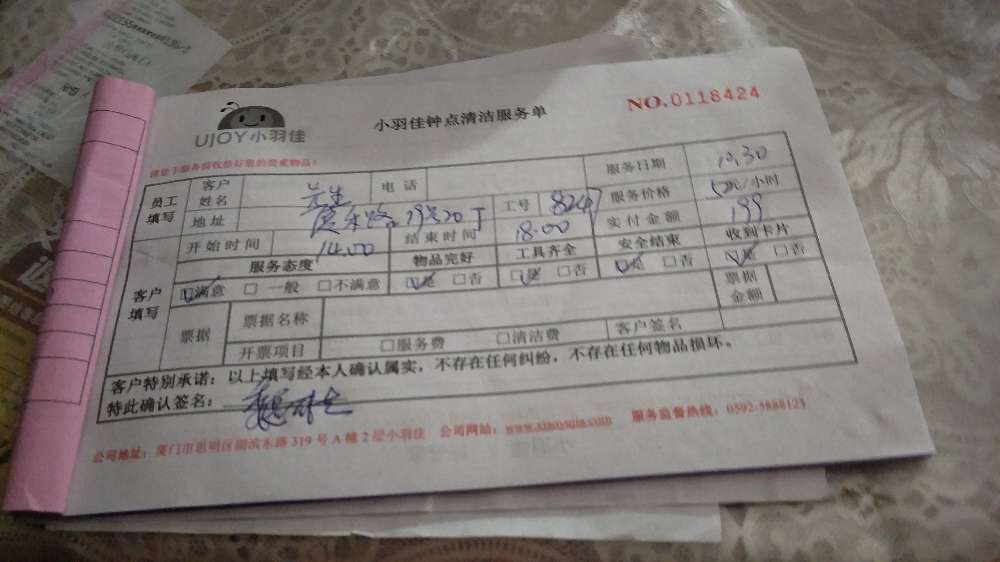 UJOY小羽佳
小羽佳钟点清洁服务单
NO.0118424
员工填写
客户姓名
先生
电话
服务日期
10.30
地址
19号20丁
工号
8247
服务价格
50元/小时
客户填写
开始时间
14.00
结束时间
18.00
实付金额
199
服务态度
物品完好
工具齐全
安全结束
收到卡片
☑满意 □一般 □不满意
☑是 □否
☑是 □否
☑是 □否
☑是 □否
票据
票据名称
票据金额
开票项目
□服务费 □清洁费
客户签名
客户特别承诺:以上填写经本人确认属实,不存在任何纠纷,不存在任何物品损坏。
特此确认签名:
公司地址:厦门市思明区湖滨东路319号A幢2层小羽佳 公司网站: 服务监督热线:0592-5888123